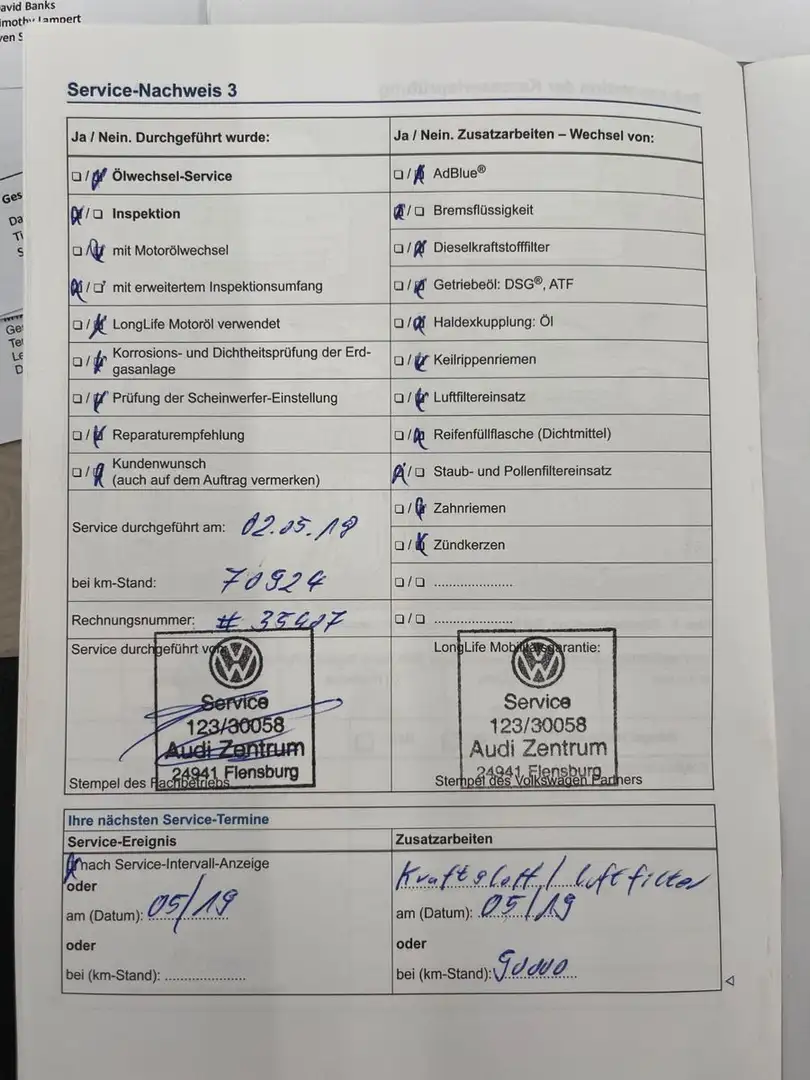 avid Banks
Service-Nachweis 3
Ja / Nein. Durchgeführt wurde:
☐ / ☒ Ölwechsel-Service
☒ / ☐ Inspektion
☐ / ☒ mit Motorölwechsel
☒ / ☐ mit erweitertem Inspektionsumfang
☐ / ☒ LongLife Motoröl verwendet
☐ / ☒ Korrosions- und Dichtheitsprüfung der Erd-
gasanlage
☐ / ☒ Prüfung der Scheinwerfer-Einstellung
☐ / ☒ Reparaturempfehlung
☐ / ☒ Kundenwunsch
(auch auf dem Auftrag vermerken)
Service durchgeführt am: 02.05.18
bei km-Stand: 70924
Rechnungsnummer:
Service durchgeführt von
Service
123/30058
Audi Zentrum
24941 Flensburg
Stempel des Fachbetriebs
Ja / Nein. Zusatzarbeiten – Wechsel von:
☐ / ☒ AdBlue®
☒ / ☐ Bremsflüssigkeit
☐ / ☒ Dieselkraftstofffilter
☐ / ☒ Getriebeöl: DSG®, ATF
☐ / ☒ Haldexkupplung: Öl
☐ / ☒ Keilrippenriemen
☐ / ☒ Luftfiltereinsatz
☐ / ☒ Reifenfüllflasche (Dichtmittel)
☒ / ☐ Staub- und Pollenfiltereinsatz
☐ / ☒ Zahnriemen
☐ / ☒ Zündkerzen
☐ / ☐ ......................
☐ / ☐ ......................
LongLife Mobilitätsgarantie:
Service
123/30058
Audi Zentrum
24941 Flensburg
Stempel des Volkswagen Partners
Ihre nächsten Service-Termine
Service-Ereignis
☒ nach Service-Intervall-Anzeige
oder
am (Datum): 05/19
oder
bei (km-Stand): ......................
Zusatzarbeiten
luftfilter
am (Datum): 05/19
oder
bei (km-Stand): 90000